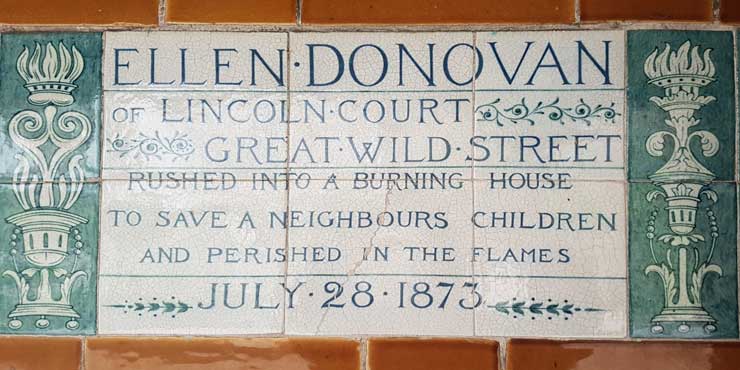 ELLEN·DONOVAN
OF LINCOLN·COURT
GREAT·WILD·STREET
RUSHED INTO A BURNING HOUSE
TO SAVE A NEIGHBOURS CHILDREN
AND PERISHED IN THE FLAMES
JULY·28·1873